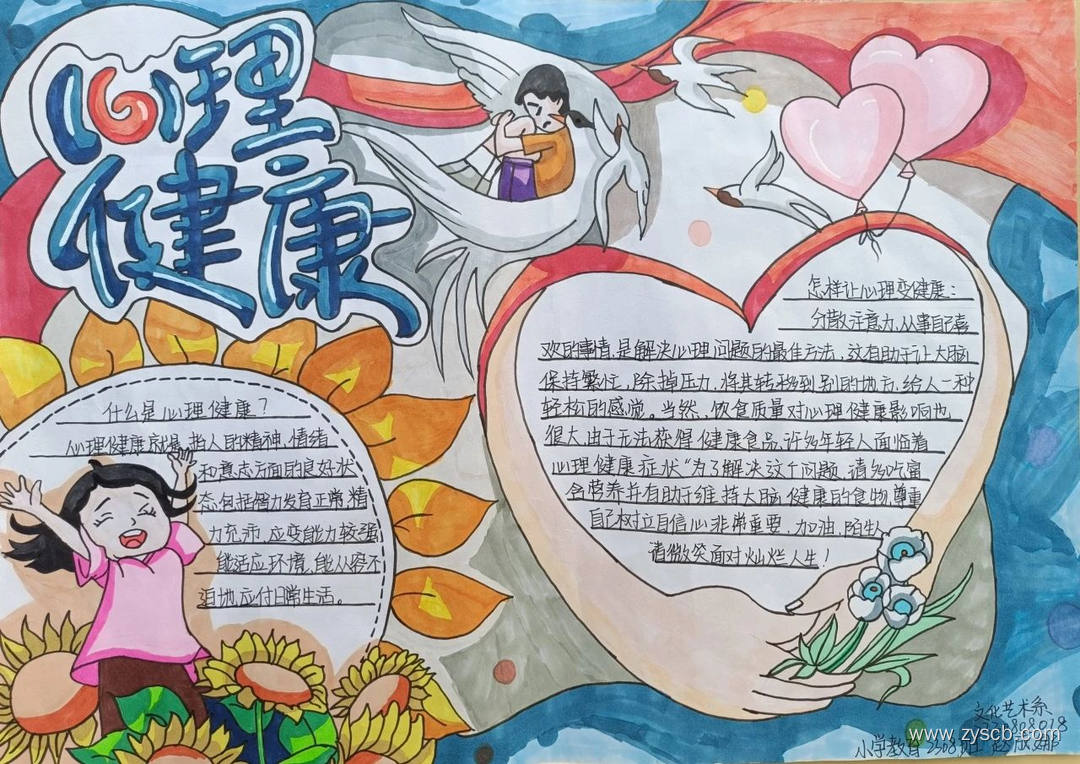 心理
健康
什么是心理健康？
心理健康就是指人的精神、情绪
和意志方面的良好状
态,包括智力发育正常,精
力充沛,应变能力较强
能适应环境,能从容不
迫地应付日常生活。
怎样让心理变健康：
分散注意力,从事自己喜
欢的事情,是解决心理问题的最佳方法,这有助于让大脑
保持繁忙,除掉压力,将其转移到别的地方,给人一种
轻松的感觉。当然、饮食质量对心理健康影响也
很大由于无法获得健康食品,许多年轻人面临着
心理健康症状"为了解决这个问题,请多吃富
含营养并有助于维持大脑健康的食物,尊重
自己树立自信心非常重要,加油,陌生人
请微笑面对灿烂人生！
文化艺术系
小学教育2308班
www.zyscb.com